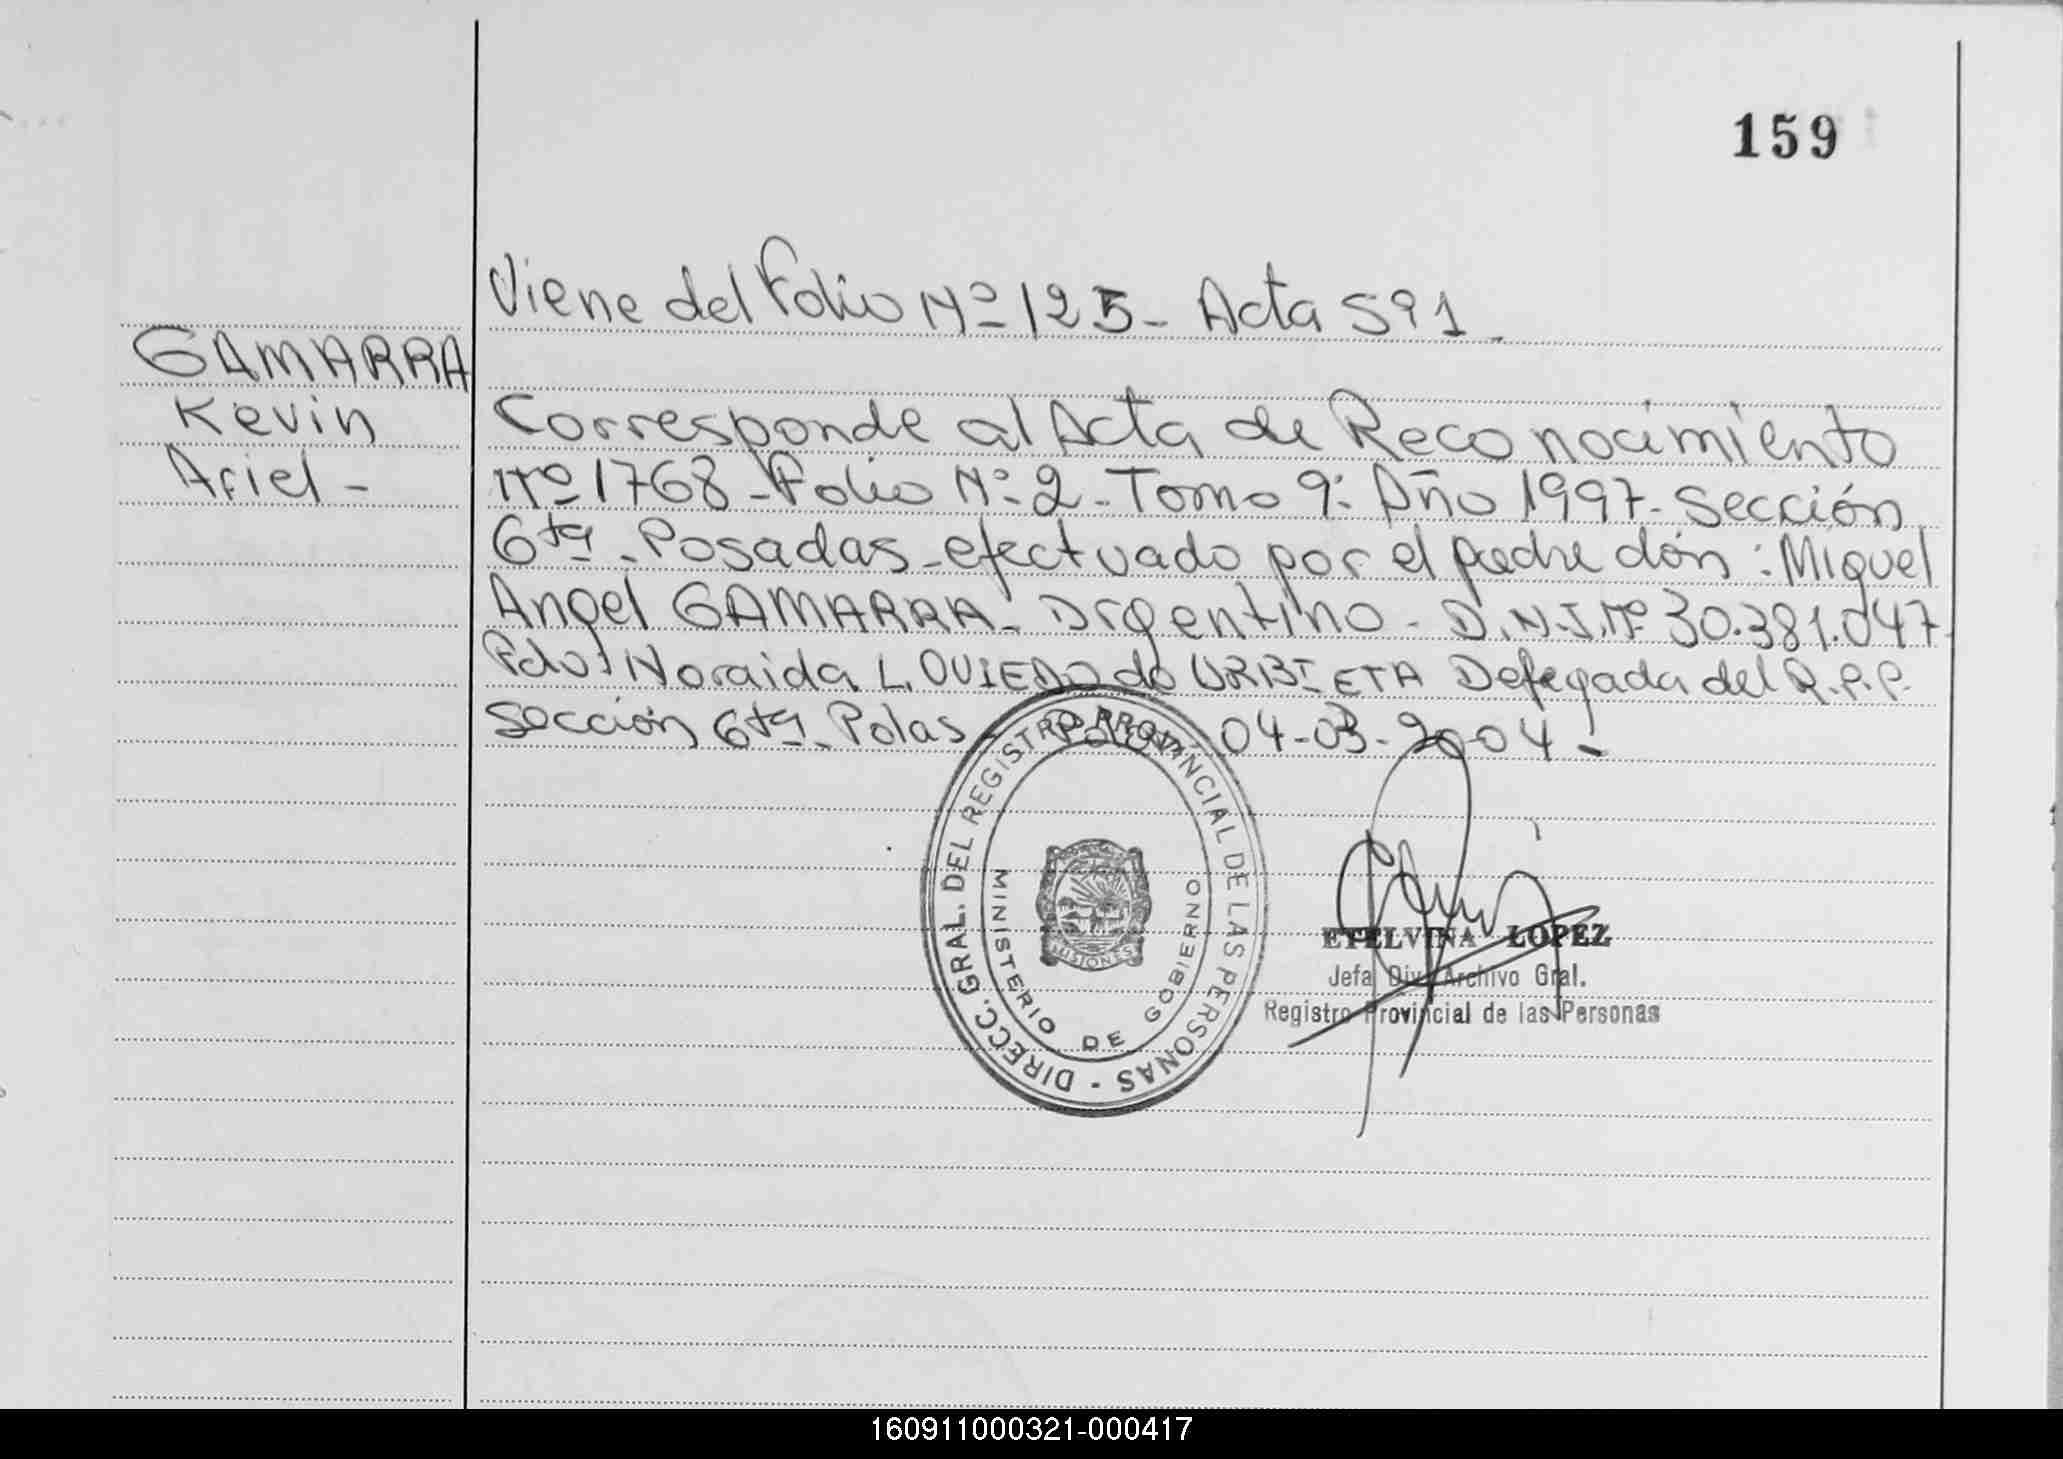 159
Viene del Folio Nº 125- Acta 591-
GAMARRA
Kevin
Ariel-
Corresponde al Acta de Reconocimiento
Nº 1768-Folio Nº 2-Tomo 9º Año 1997-Sección
6ta-Posadas-efectuado por el padre dón: Miguel
Angel GAMARRA-Argentino-D.N.I.Nº 30.381.047-
Fdo: Noraida L. OVIEDO de URBIETA Delegada del R.P.P.
Sección 6ta-Pdas- 04-03-2004-
DIRECC. GRAL. DEL REGISTRO PROVINCIAL DE LAS PERSONAS -
MINISTERIO DE GOBIERNO
MISIONES
ETELVINA LOPEZ
Jefa Div. Archivo Gral.
Registro Provincial de las Personas
160911000321-000417